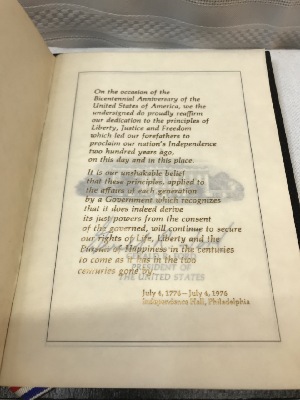 On the occasion of the
Bicentennial Anniversary of the
United States of America, we the
undersigned do proudly reaffirm
our dedication to the principles of
Liberty, Justice and Freedom
which led our forefathers to
proclaim our nation's Independence
two hundred years ago,
on this day and in this place.
It is our unshakable belief
that these principles, applied to
the affairs of each generation
by a Government which recognizes
that it does indeed derive
its just powers from the consent
of the governed, will continue to secure
our rights of Life, Liberty and the
Pursuit of Happiness in the centuries
to come as it has in the two
centuries gone by.
GERALD R. FORD
PRESIDENT OF
THE UNITED STATES
July 4, 1776 - July 4, 1976
Independence Hall, Philadelphia